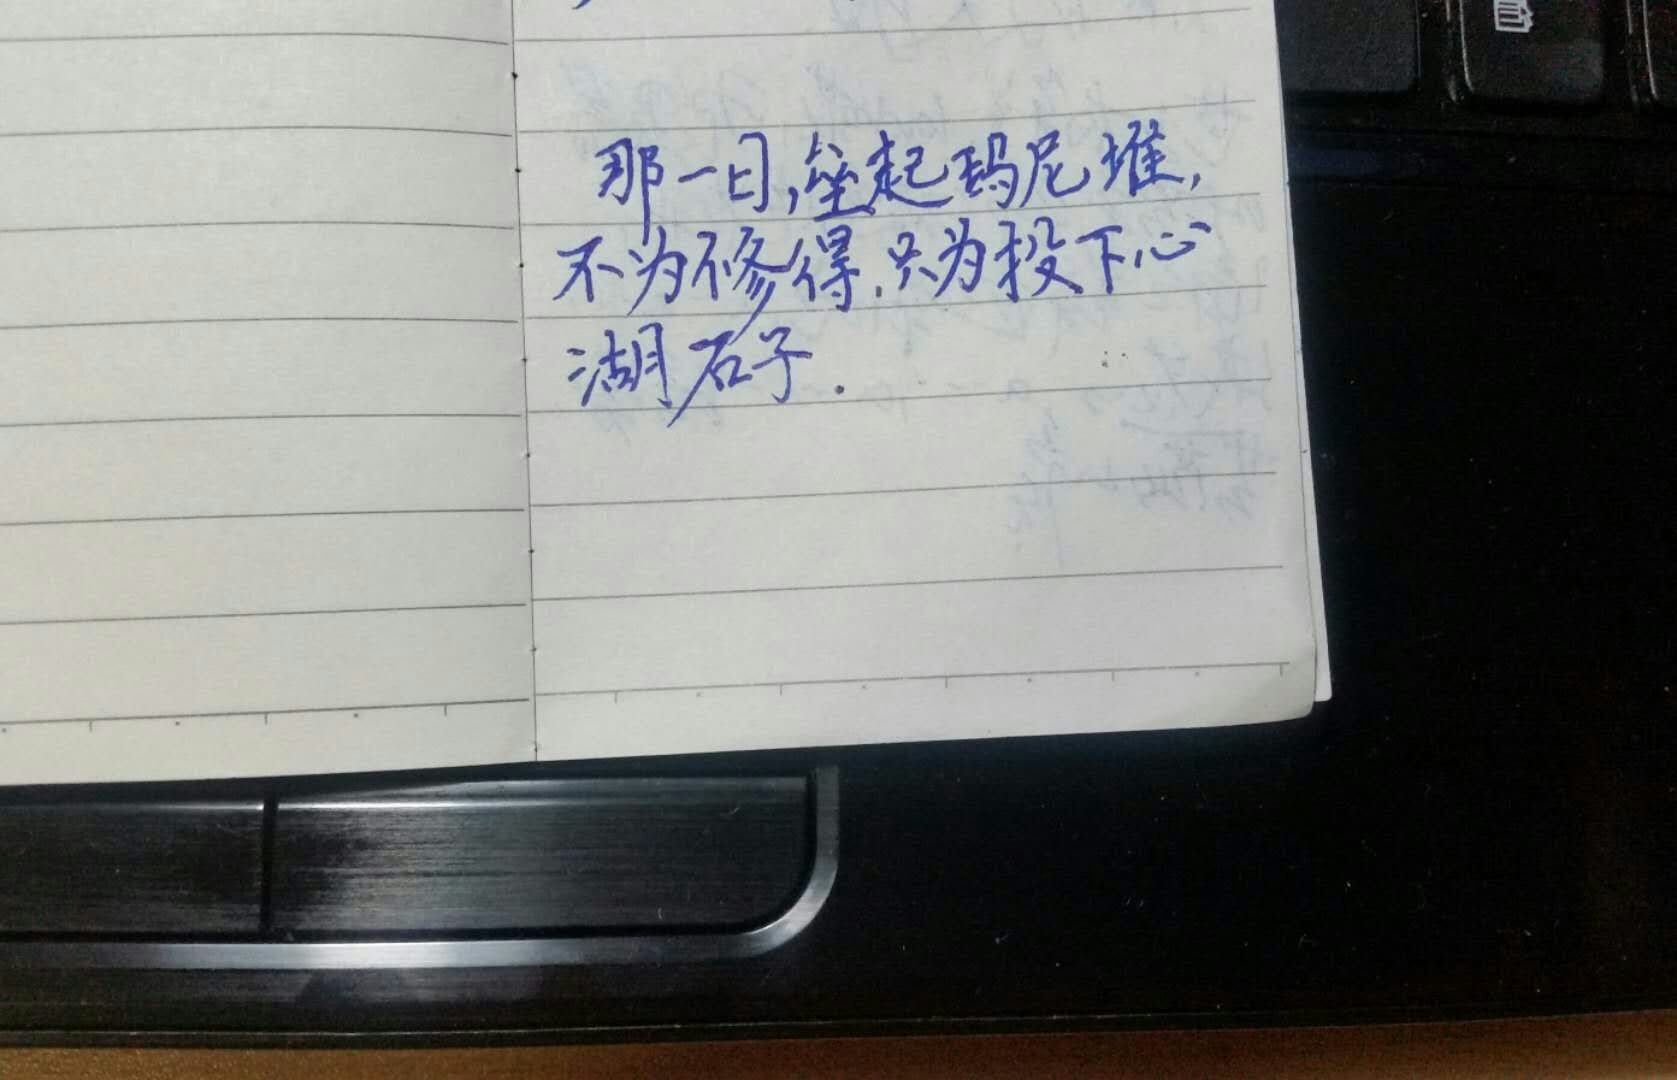 那一日,垒起玛尼堆,
不为修得.只为投下心
湖石子.